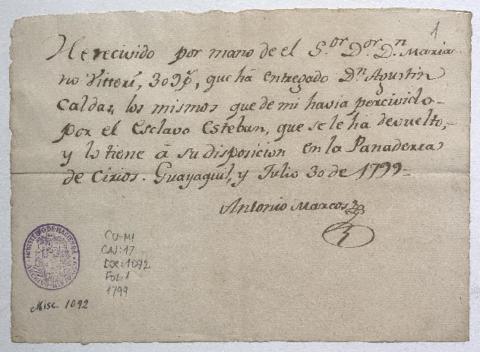 1
He recivido por mano de el S.or D.or D.n Maria
no Vitteri, 303p, que ha entregado D.n Agustin
Caldas, los mismos que de mi havia percivido
por el Esclavo Esteban, que se le ha devuelto,
y lo tiene á su disposicion en la Panaderia
de Cirios. Guayaquil, y Julio 30 de 1799
Antonio Marcos
MINISTERIO DE HACIENDA
CO-MI
CAJ: 17
DOC: 1092
FOL: 1
1799
Misc. 1092